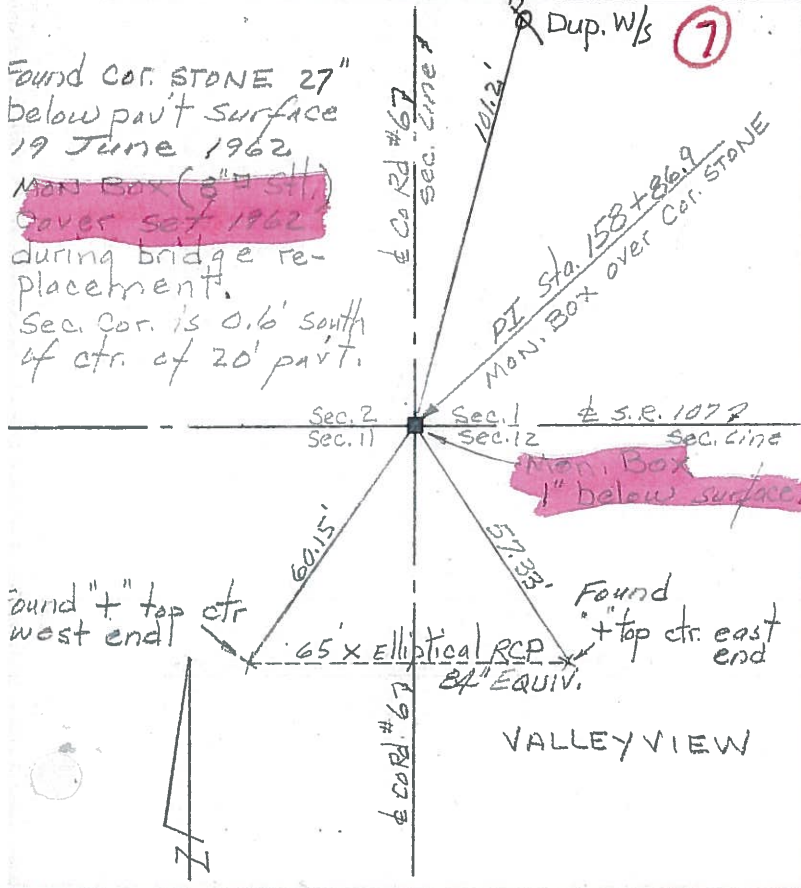 Dup. W/s
7
Found Cor. STONE 27"
below pav't surface
19 June 1962
Mon Box (8" Stl.)
Cover set 1962
during bridge re-
placement.
Sec. Cor. is 0.6' South
of ctr. of 20' pav't.
℄ Co Rd #67
Sec. Line
101.2'
PI Sta. 158+86.9
MON. BOX over Cor. STONE
Sec. 2
Sec. 1
℄ S.R. 107
Sec. 11
Sec. 12
Sec. Line
Mon. Box
1" below surface
60.15'
57.33'
Found "+" top ctr
west end
Found
"+" top ctr. east
end
65' x Elliptical RCP
84" EQUIV.
℄ CORd. #67
VALLEYVIEW